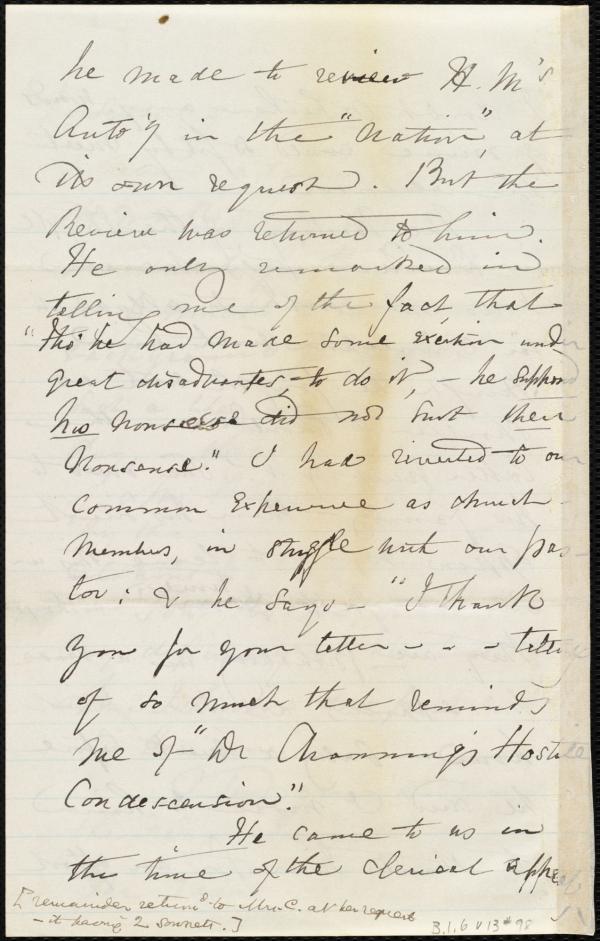 he made to review H. M's
Auto'y in the "Nation", at
its own request. But the
Review was returned to him.
He only remarked in
telling me of the fact, that
"tho' he had made some exertion und
great disadvantes, to do it, - he suppose
his nonsense did not suit their
nonsense." I had reverted to our
common experience as church
members, in struggle with our pas-
tor: & he says - "I thank
you for your letter - - - telling
of so much that reminds
me of "Dr Channing's Hostile
Condescension."
He came to us in
the time of the clerical appeal
[remainder return'd to Mrs. C. at her request
- it having 2 sonnets.]
3.1.6 V 13 # 98